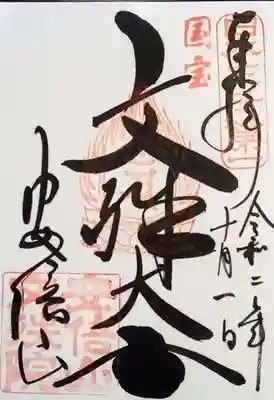 奉拝
令和二年
十月一日
国宝
文殊大
安倍山